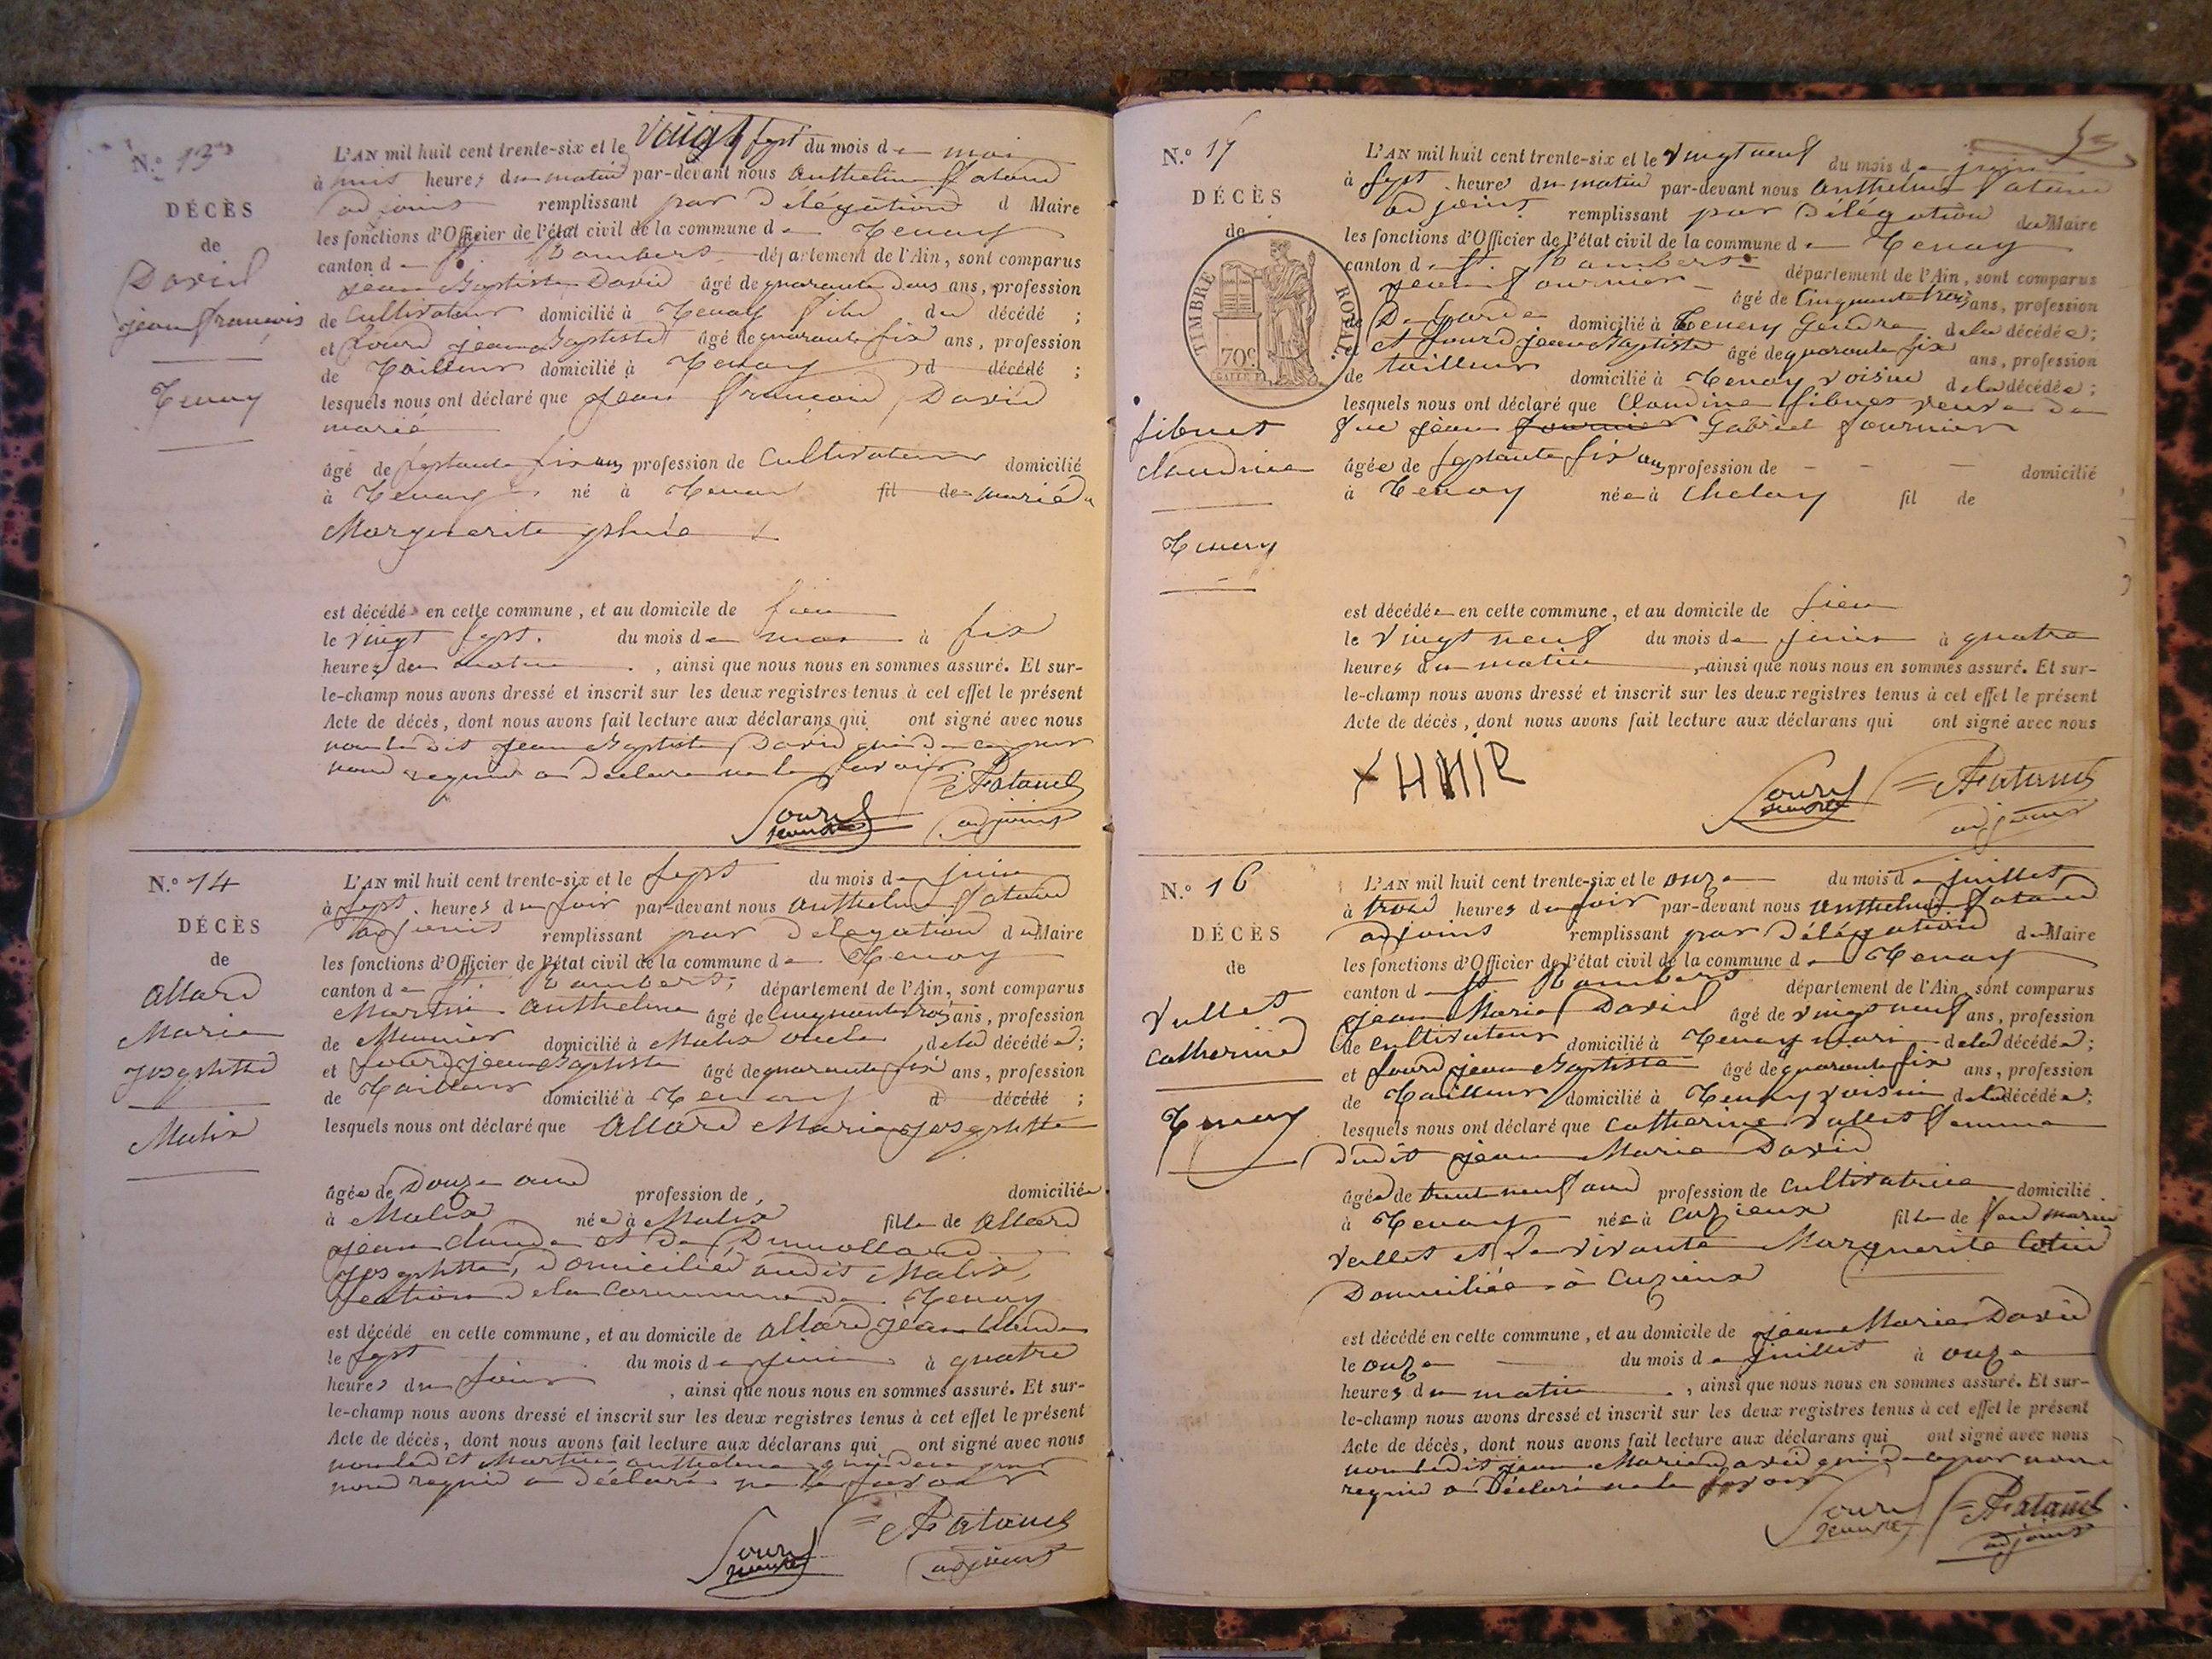 N.º 13
DÉCÈS
de
David
jean françois
Tenay
L'AN mil huit cent trente-six et le vingt sept du mois de mai
à huit heures du matin par-devant nous anthelme
adjoint remplissant par délégation d Maire
les fonctions d'Officier de l'état civil de la commune de Tenay
canton de St. Rambert département de l'Ain, sont comparus
jean Baptiste David âgé de quarante deux ans, profession
de Cultivateur domicilié à Tenay fils du décédé ;
et jean Baptiste âgé de quarante six ans, profession
de Tailleur domicilié à Tenay d décédé ;
lesquels nous ont déclaré que jean françois David
marié
âgé de septante six ans profession de Cultivateur domicilié
à Tenay né à Tenay fil de marié à
Marguerite
est décédé en cette commune, et au domicile de sien
le vingt sept du mois de mai à six
heures du matin, ainsi que nous nous en sommes assuré. Et sur-
le-champ nous avons dressé et inscrit sur les deux registres tenus à cet effet le présent
Acte de décès, dont nous avons fait lecture aux déclarans qui ont signé avec nous
non le dit jean Baptiste David qui de ce par
nous requis a déclaré ne le savoir
adjoint
N.º 14
DÉCÈS
de
allard
Marie
josephte
Malix
L'AN mil huit cent trente-six et le sept du mois de juin
à sept heures du soir par-devant nous anthelme
adjoint remplissant par délégation du Maire
les fonctions d'Officier de l'état civil de la commune de Tenay
canton de St. Rambert, département de l'Ain, sont comparus
Martin anthelme âgé de cinquante trois ans, profession
de Meunier domicilié à Malix oncle de la décédée;
et jean Baptiste âgé de quarante six ans, profession
de Tailleur domicilié à Tenay d décédé ;
lesquels nous ont déclaré que allard Marie josephte
âgée de Douze ans profession de domiciliée
à Malix née à Malix fille de allard
jean claude et de Dumollard
josephte, domiciliés audit Malix,
section de la Commune de Tenay
est décédé en cette commune, et au domicile de allard jean claude
le sept du mois de juin à quatre
heures du soir, ainsi que nous nous en sommes assuré. Et sur-
le-champ nous avons dressé et inscrit sur les deux registres tenus à cet effet le présent
Acte de décès, dont nous avons fait lecture aux déclarans qui ont signé avec nous
non led it Martin anthelme qui de ce par
nous requis a déclaré ne le savoir
adjoint
N.º 15
DÉCÈS
de
TIMBRE ROYAL
70 c.
claudine
Tenay
L'AN mil huit cent trente-six et le vingt neuf du mois de juin
à sept heures du matin par-devant nous anthelme
adjoint remplissant par délégation du Maire
les fonctions d'Officier de l'état civil de la commune de Tenay
canton de St. Rambert département de l'Ain, sont comparus
jean fournier âgé de cinquante trois ans, profession
de Garde domicilié à Tenay Gendre de la décédée;
et jean Baptiste âgé de quarante six ans, profession
de tailleur domicilié à Tenay voisin de la décédée;
lesquels nous ont déclaré que Claudine veuve de
feu jean fournier Gabriel fournier
âgée de septante six ans profession de - - - domicilié
à Tenay née à Chaley fil de
est décédée en cette commune, et au domicile de sien
le vingt neuf du mois de juin à quatre
heures du matin, ainsi que nous nous en sommes assuré. Et sur-
le-champ nous avons dressé et inscrit sur les deux registres tenus à cet effet le présent
Acte de décès, dont nous avons fait lecture aux déclarans qui ont signé avec nous
adjoint
N.º 16
DÉCÈS
de
Vullet
Catherine
Tenay
L'AN mil huit cent trente-six et le onze du mois de juillet
à trois heures du soir par-devant nous anthelme
adjoint remplissant par délégation du Maire
les fonctions d'Officier de l'état civil de la commune de Tenay
canton de St Rambert département de l'Ain, sont comparus
jean Marie David âgé de vingt neuf ans, profession
de cultivateur domicilié à Tenay mari de la décédée;
et jean Baptiste âgé de quarante six ans, profession
de Tailleur domicilié à Tenay voisin de la décédée;
lesquels nous ont déclaré que Catherine Vullet femme
dudit jean Marie David
âgée de trente neuf ans profession de cultivatrice domicilié
à Tenay née à Cuzieux fille de feu
Vullet et de vivante Marguerite
Domiciliée à Cuzieux
est décédé en cette commune, et au domicile de jean Marie David
le onze du mois de juillet à onze
heures du matin, ainsi que nous nous en sommes assuré. Et sur-
le-champ nous avons dressé et inscrit sur les deux registres tenus à cet effet le présent
Acte de décès, dont nous avons fait lecture aux déclarans qui ont signé avec nous
non ledit jean Marie David qui de ce par nous
requis a déclaré ne le savoir
adjoint